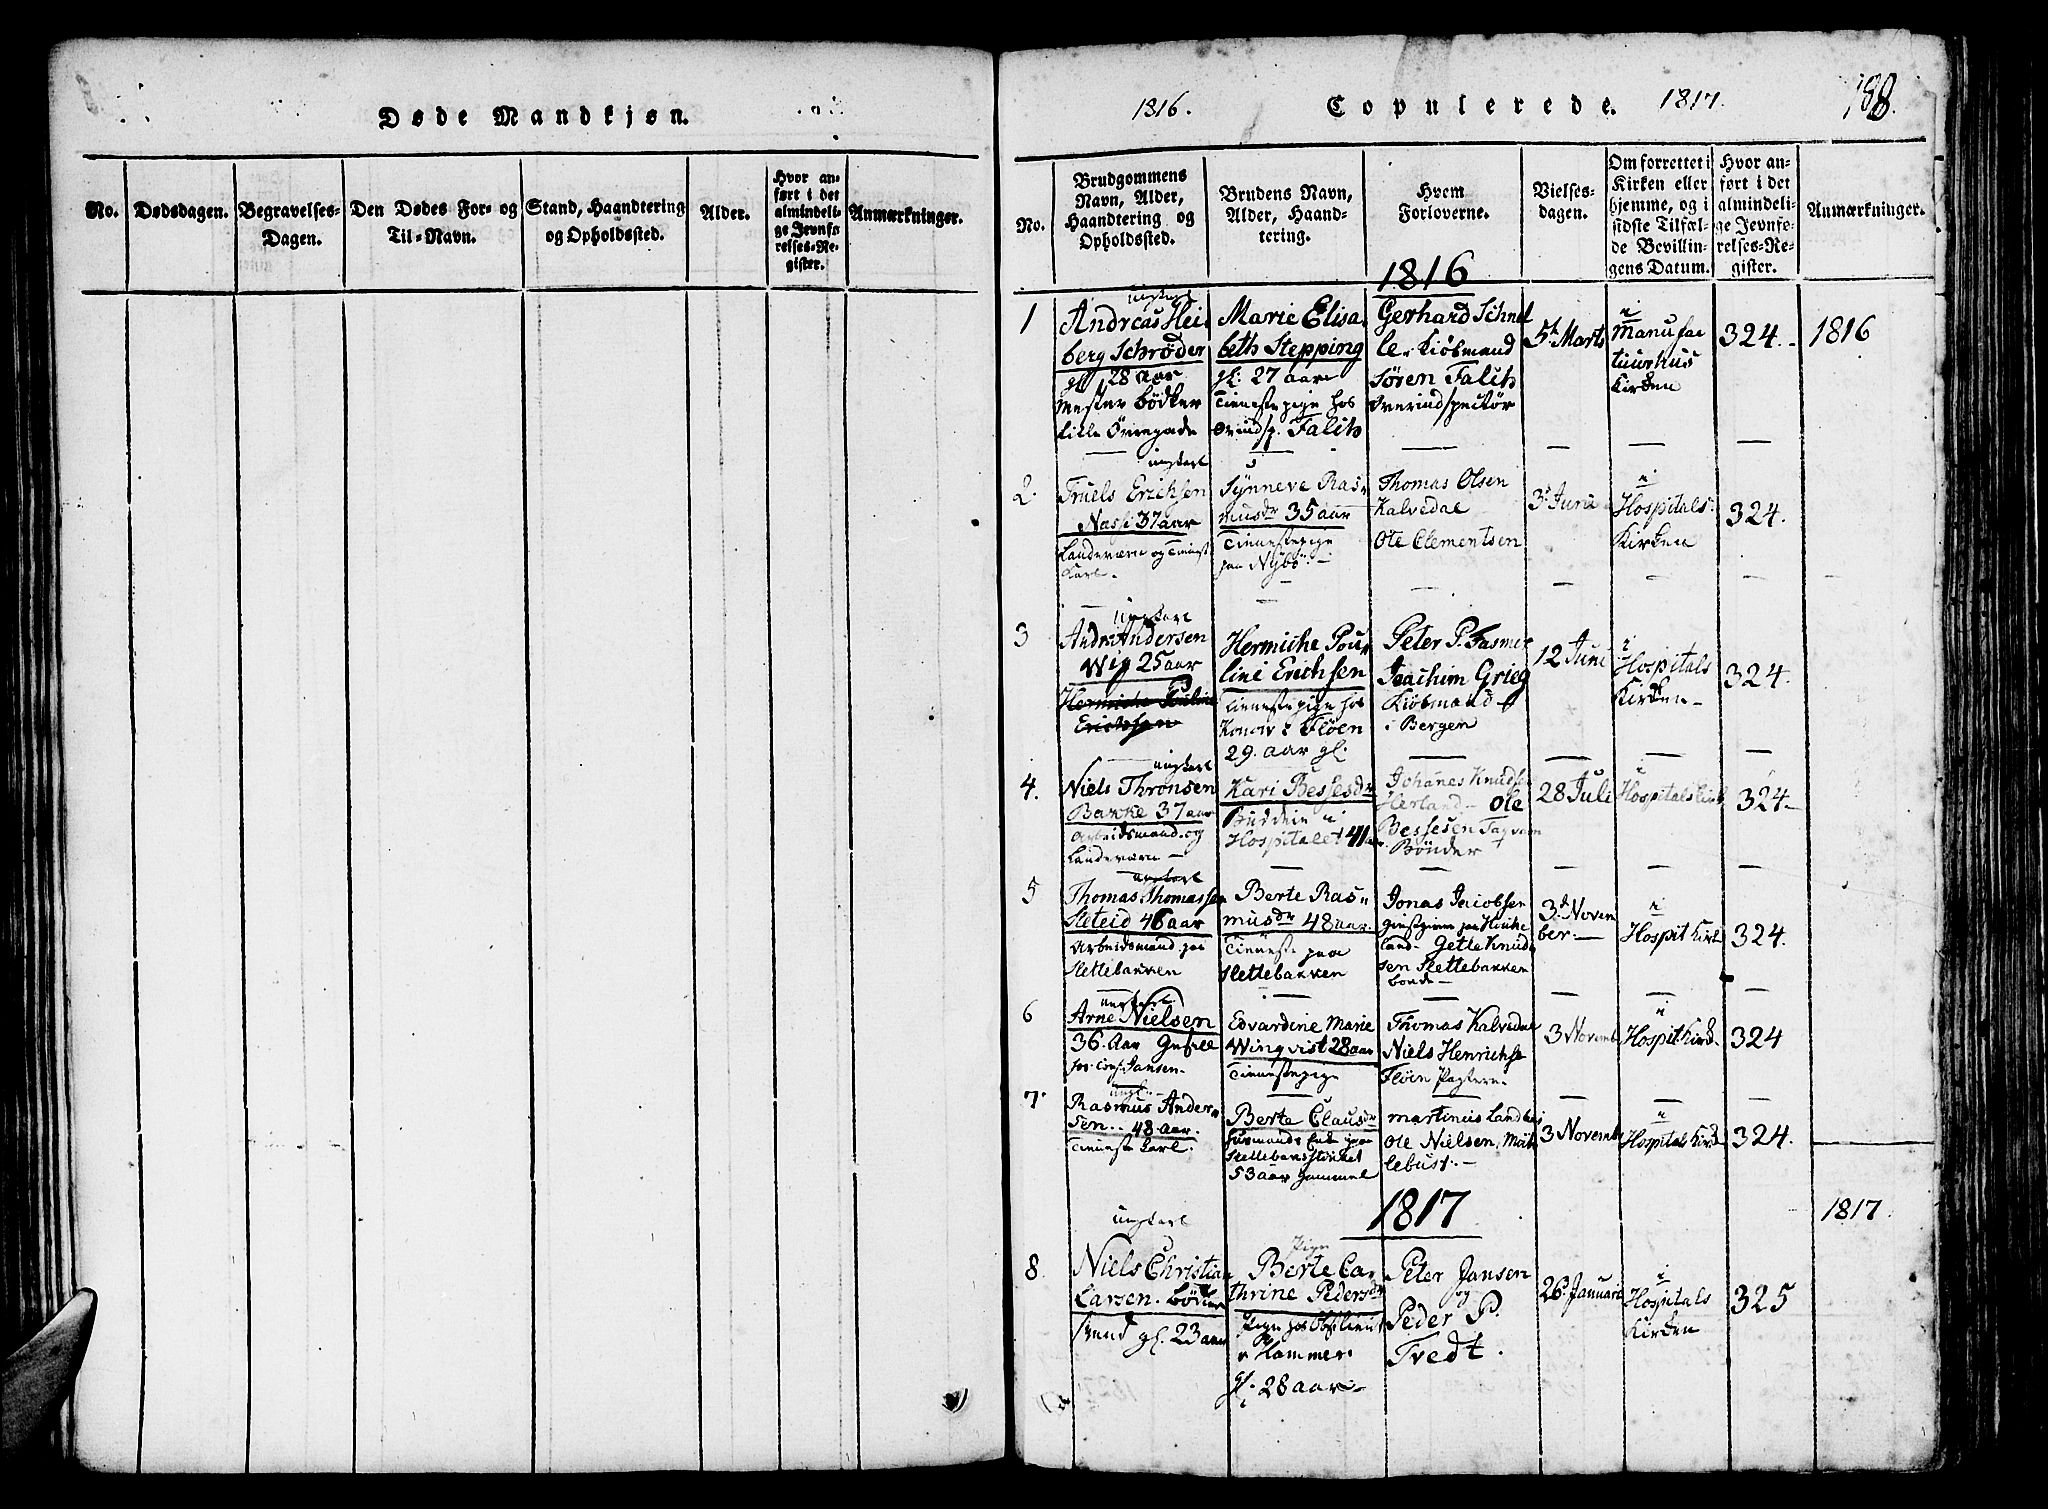 Døde Mandkjøn.
No.
Dødsdagen.
Begravelses-
Dagen.
Den Dødes For- og
Til-Navn.
Stand, Haandtering
og Opholdssted.
Alder.
Hvor an-
ført i det
almindeli-
ge Jevnfø-
relses-Re-
gister.
Anmærkninger.
1816. Copulerede. 1817. 188.
No.
Brudgommens
Navn, Alder,
Haandtering og
Opholdssted.
Brudens Navn,
Alder, Haand-
tering.
Hvem
Forloverne.
Vielses-
dagen.
Om forrettet i
Kirken eller
hjemme, og i
sidste Tilfæl-
de Bevillin-
gens Datum.
Hvor an-
ført i det
almindeli-
ge Jevnfø-
relses-Re-
gister.
Anmærkninger.
1816
1
ungkarl
Andreas Hei-
berg Schrøder
gl. 28 aar
Mester Bødker
Lille Øvregade
Marie Elisa-
beth Stepping
gl: 27 aar
Tienestepige hos
Falch
Gerhard Schnel
le. Kiøbmand
Søren Falch
Overindspectør
5t Marts
i
Manufac
tuurhus
Kirken
324.
1816
2.
ungkarl
Truels Erichsen
Næsse 37 aar
Landeværn og Tienest
Karl.
Synneve Ras-
musdr 35 aar
Tienestepige
paa Nybö.
Thomas Olsen
Kalvedal
Ole Clementsen
3d Juni
i
Hospitals
Kirken
324.
3
Ungkarl
Andr Andersen
Wig 25 aar
Hermiche Pouline
Erichsen
Hermiche Pou-
line Erichsen
Tienestepige hos
Fløen
29. aar gl.
Peter P. Fasmer
Joachim Grieg
Kiøbmænd
i Bergen
12 Juni
i
Hospitals
Kirken
324.
4.
ungkarl
Niels Thronsen
Bakke 37 aar
Arbeidsmand og
Landeværn
Kari Bessesdr
Buddein i
Hospitalet 41 aar
Johanes Knudsen
Herland Ole
Bessesen
Bönder
28 Juli
i
Hospitals Kirk
324
5
ungkarl
Thomas Thomassen
Sleteid 46 aar
Arbeidsmand paa
Slettebakken
Berte Ras-
musdr 48 aar.
Tieneste paa
Slettebakken
Jonas Jacobsen
giestgiver paa Kirke
land Gette Knud
sen Slettebakken
bonde
3d Novem
ber.
i
Hospit Kirk
324.
6
ungkarl
Arne Nielsen
36. Aar Gesell
hos Jansen.
Edvardine Marie
Wingvist 28 aar
Tienestepige
Thomas Kalvedal
Niels Henrichse
Fløen
3 Novemb
i
Hospit Kirk
324
7.
ungk
Rasmus Ander-
sen. 48 aar.
Tieneste Karl.
Berte Clausdr
Husmands Enke paa
53 aar gammel
Martinus
Ole Nielsen, Møh
lebust.
3 Novemb
i
Hospitals Kirk
324.
1817
1817
8
ungkarl
Niels Christian
Larsen. Bødker
Svend gl. 23 aar
Pige
Berte Ca-
thrine Pedersdr
Pige hos
Hammer
gl. 28 aar
Peter Jansen
og
Peder P.
Tvedt.
26. Januari
i
Hospitals
Kirken
325